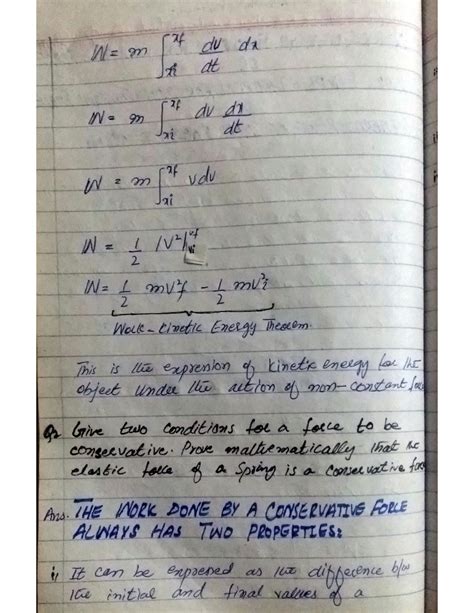 W = m ∫xi^xf dv/dt dx
W = m ∫xi^xf dv dx/dt
W = m ∫xi^xf vdv
W = 1/2 |V²|vi^vf
W = 1/2 mv²f - 1/2 mv²i
Work-Kinetic Energy Theorem.
This is the expression of kinetic energy for the
object under the action of non-constant force
Q2 Give two conditions for a force to be
conservative. Prove mathematically that the
elastic force of a spring is a conservative force
Ans. THE WORK DONE BY A CONSERVATIVE FORCE
ALWAYS HAS TWO PROPERTIES:
i) It can be expressed as the difference b/w
the initial and final values of a